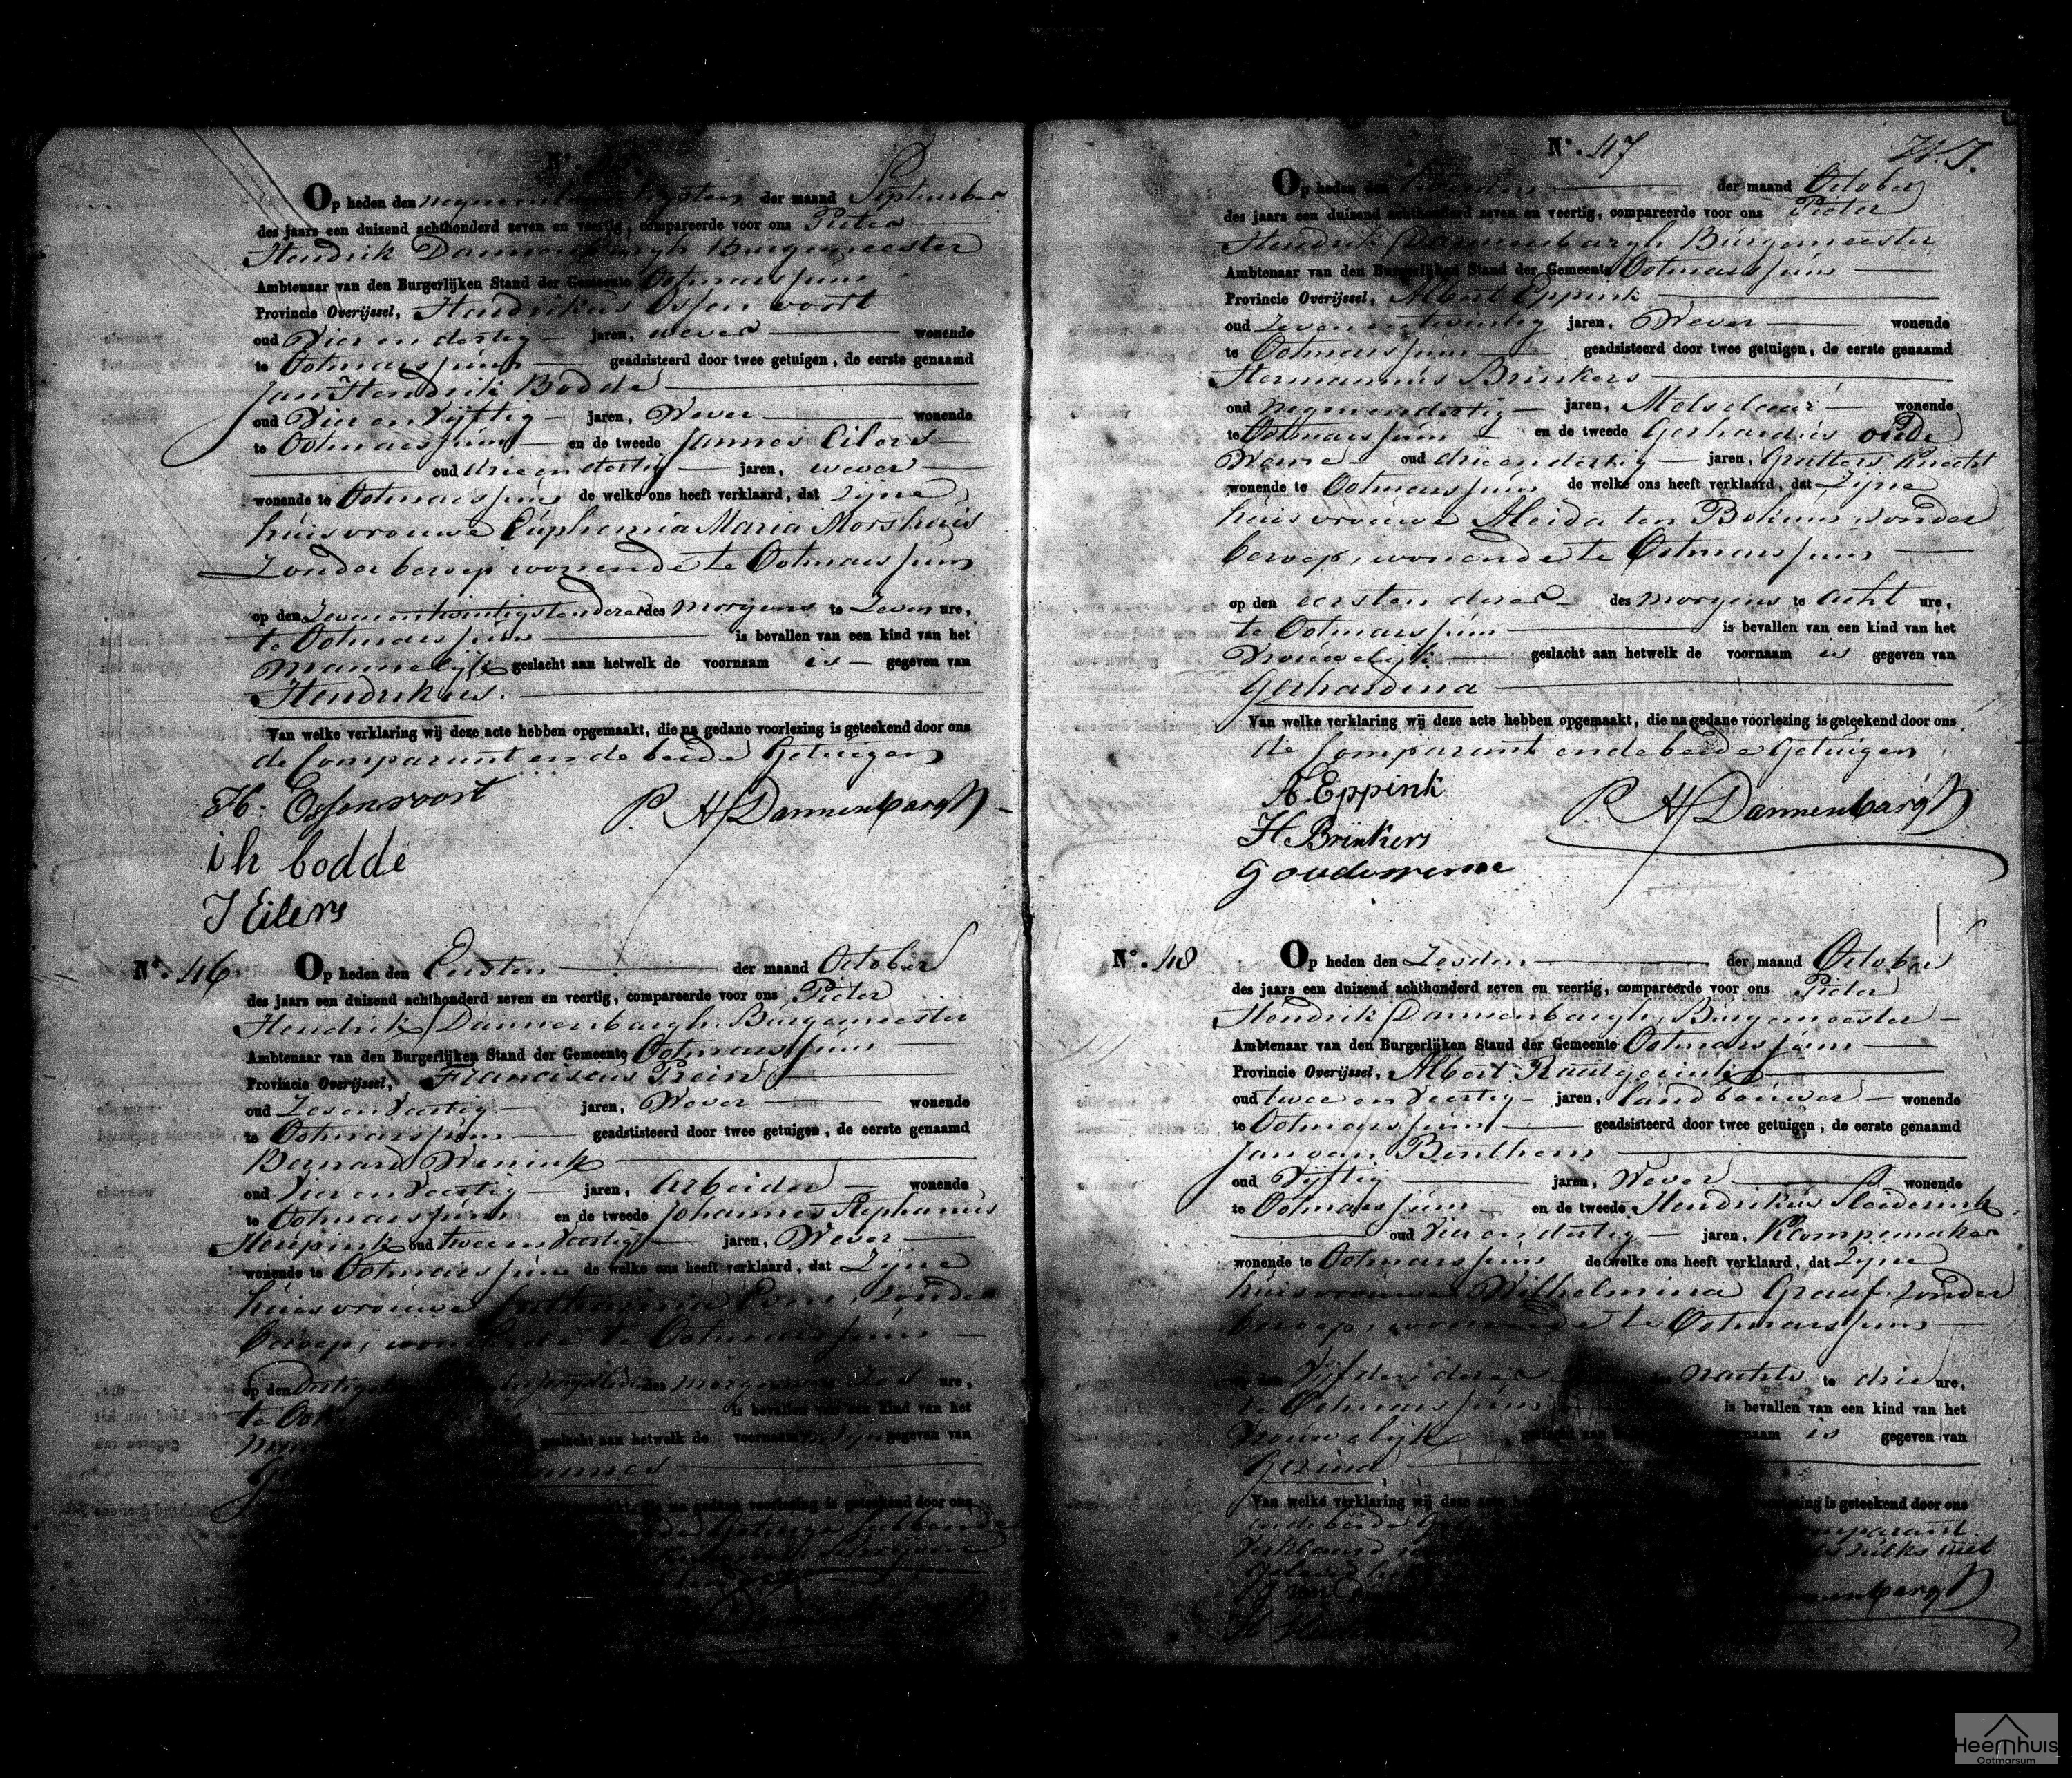 N°.
Op heden den negenentwintigsten der maand September
des jaars een duizend achthonderd zeven en veertig, compareerde voor ons Pieter
Hendrik Dannenbargh Burgemeester
Ambtenaar van den Burgerlijken Stand der Gemeente Ootmarssum
Provincie Overijssel, Hendrikus Ossenvoort
oud Vier en dertig jaren, wever wonende
te Ootmarssum geadsisteerd door twee getuigen, de eerste genaamd
Jan Hendrik Bodde
oud Vier en Vijftig jaren, Wever wonende
te Ootmarssum en de tweede Jannes Eilers
oud drie en dertig jaren, wever
wonende te Ootmarssum de welke ons heeft verklaard, dat Zijne
huisvrouwe Euphemia Maria Morshuis
Zonder beroep wonende te Ootmarssum
op den Zeven en twintigsten dezer des morgens te Zeven ure,
te Ootmarssum is bevallen van een kind van het
Mannelijk geslacht aan hetwelk de voornaam is gegeven van
Hendrikus.
Van welke verklaring wij deze acte hebben opgemaakt, die na gedane voorlezing is geteekend door ons
de Comparant en de beide Getuigen
H: Ossenvoort P. H Dannenbargh
i h bodde
J Eilers
N°. 46 Op heden den Eersten der maand October
des jaars een duizend achthonderd zeven en veertig, compareerde voor ons Pieter
Hendrik Dannenbargh Burgemeester
Ambtenaar van den Burgerlijken Stand der Gemeente Ootmarssum
Provincie Overijssel, Franciscus Prein
oud Zes en Veertig jaren, Wever wonende
te Ootmarssum geadstisteerd door twee getuigen, de eerste genaamd
Bernard Wenink
oud Vier en Veertig jaren, Arbeider wonende
te Ootmarssum en de tweede Johannes Stephanus
Heupink oud twee en Veertig jaren, Wever
wonende te Ootmarssum de welke ons heeft verklaard, dat Zijne
huisvrouwe Catharina Zonder
beroep, wonende te Ootmarssum
op den des morgens ure,
te is bevallen van een kind van het
geslacht aan hetwelk de voornaam gegeven van
gedane voorlezing is geteekend door ons
N°. 47
Op heden den der maand October
des jaars een duizend achthonderd zeven en veertig, compareerde voor ons Pieter
Hendrik Dannenbargh Burgemeester
Ambtenaar van den Burgerlijken Stand der Gemeente Ootmarssum
Provincie Overijssel, Albert Eppink
oud Zeven en twintig jaren, Wever wonende
te Ootmarssum geadsisteerd door twee getuigen, de eerste genaamd
Hermannus Brinkers
oud negenendertig jaren, Metselaar wonende
te Ootmarssum en de tweede Gerhardus oude
Weme oud drie en dertig jaren, Grutters Knecht
wonende te Ootmarssum de welke ons heeft verklaard, dat Zijne
huisvrouwe Aleida ten Bokum, zonder
beroep, wonende te Ootmarssum
op den eersten dezer des morgens te acht ure,
te Ootmarssum is bevallen van een kind van het
Vrouwelijk geslacht aan hetwelk de voornaam is gegeven van
Gerhardina
Van welke verklaring wij deze acte hebben opgemaakt, die na gedane voorlezing is geteekend door ons
de Comparant en de beide Getuigen
A. Eppink P. H Dannenbargh
H Brinkers
G oudeweme
N°. 48 Op heden den Zesden der maand October
des jaars een duizend achthonderd zeven en veertig, compareerde voor ons Pieter
Hendrik Dannenbargh, Burgemeester
Ambtenaar van den Burgerlijken Stand der Gemeente Ootmarssum
Provincie Overijssel, Albert
oud twee en Veertig jaren, landbouwer wonende
te Ootmarssum geadsisteerd door twee getuigen, de eerste genaamd
Jan van Benthem
oud Vijftig jaren, Wever wonende
te Ootmarssum en de tweede Hendrikus
oud Vier en dertig jaren, Klompemaker
wonende te Ootmarssum de welke ons heeft verklaard, dat Zijne
huisvrouwe Wilhelmina Graaf, Zonder
beroep, wonende te Ootmarssum
Vijfden dezer nachts te drie ure,
te Ootmarssum is bevallen van een kind van het
Vrouwelijk geslacht aan is gegeven van
Gezina
Van welke verklaring wij deze acte is geteekend door ons
en de beide Comparant
Verklaard zulks niet
Heemhuis
Ootmarsum